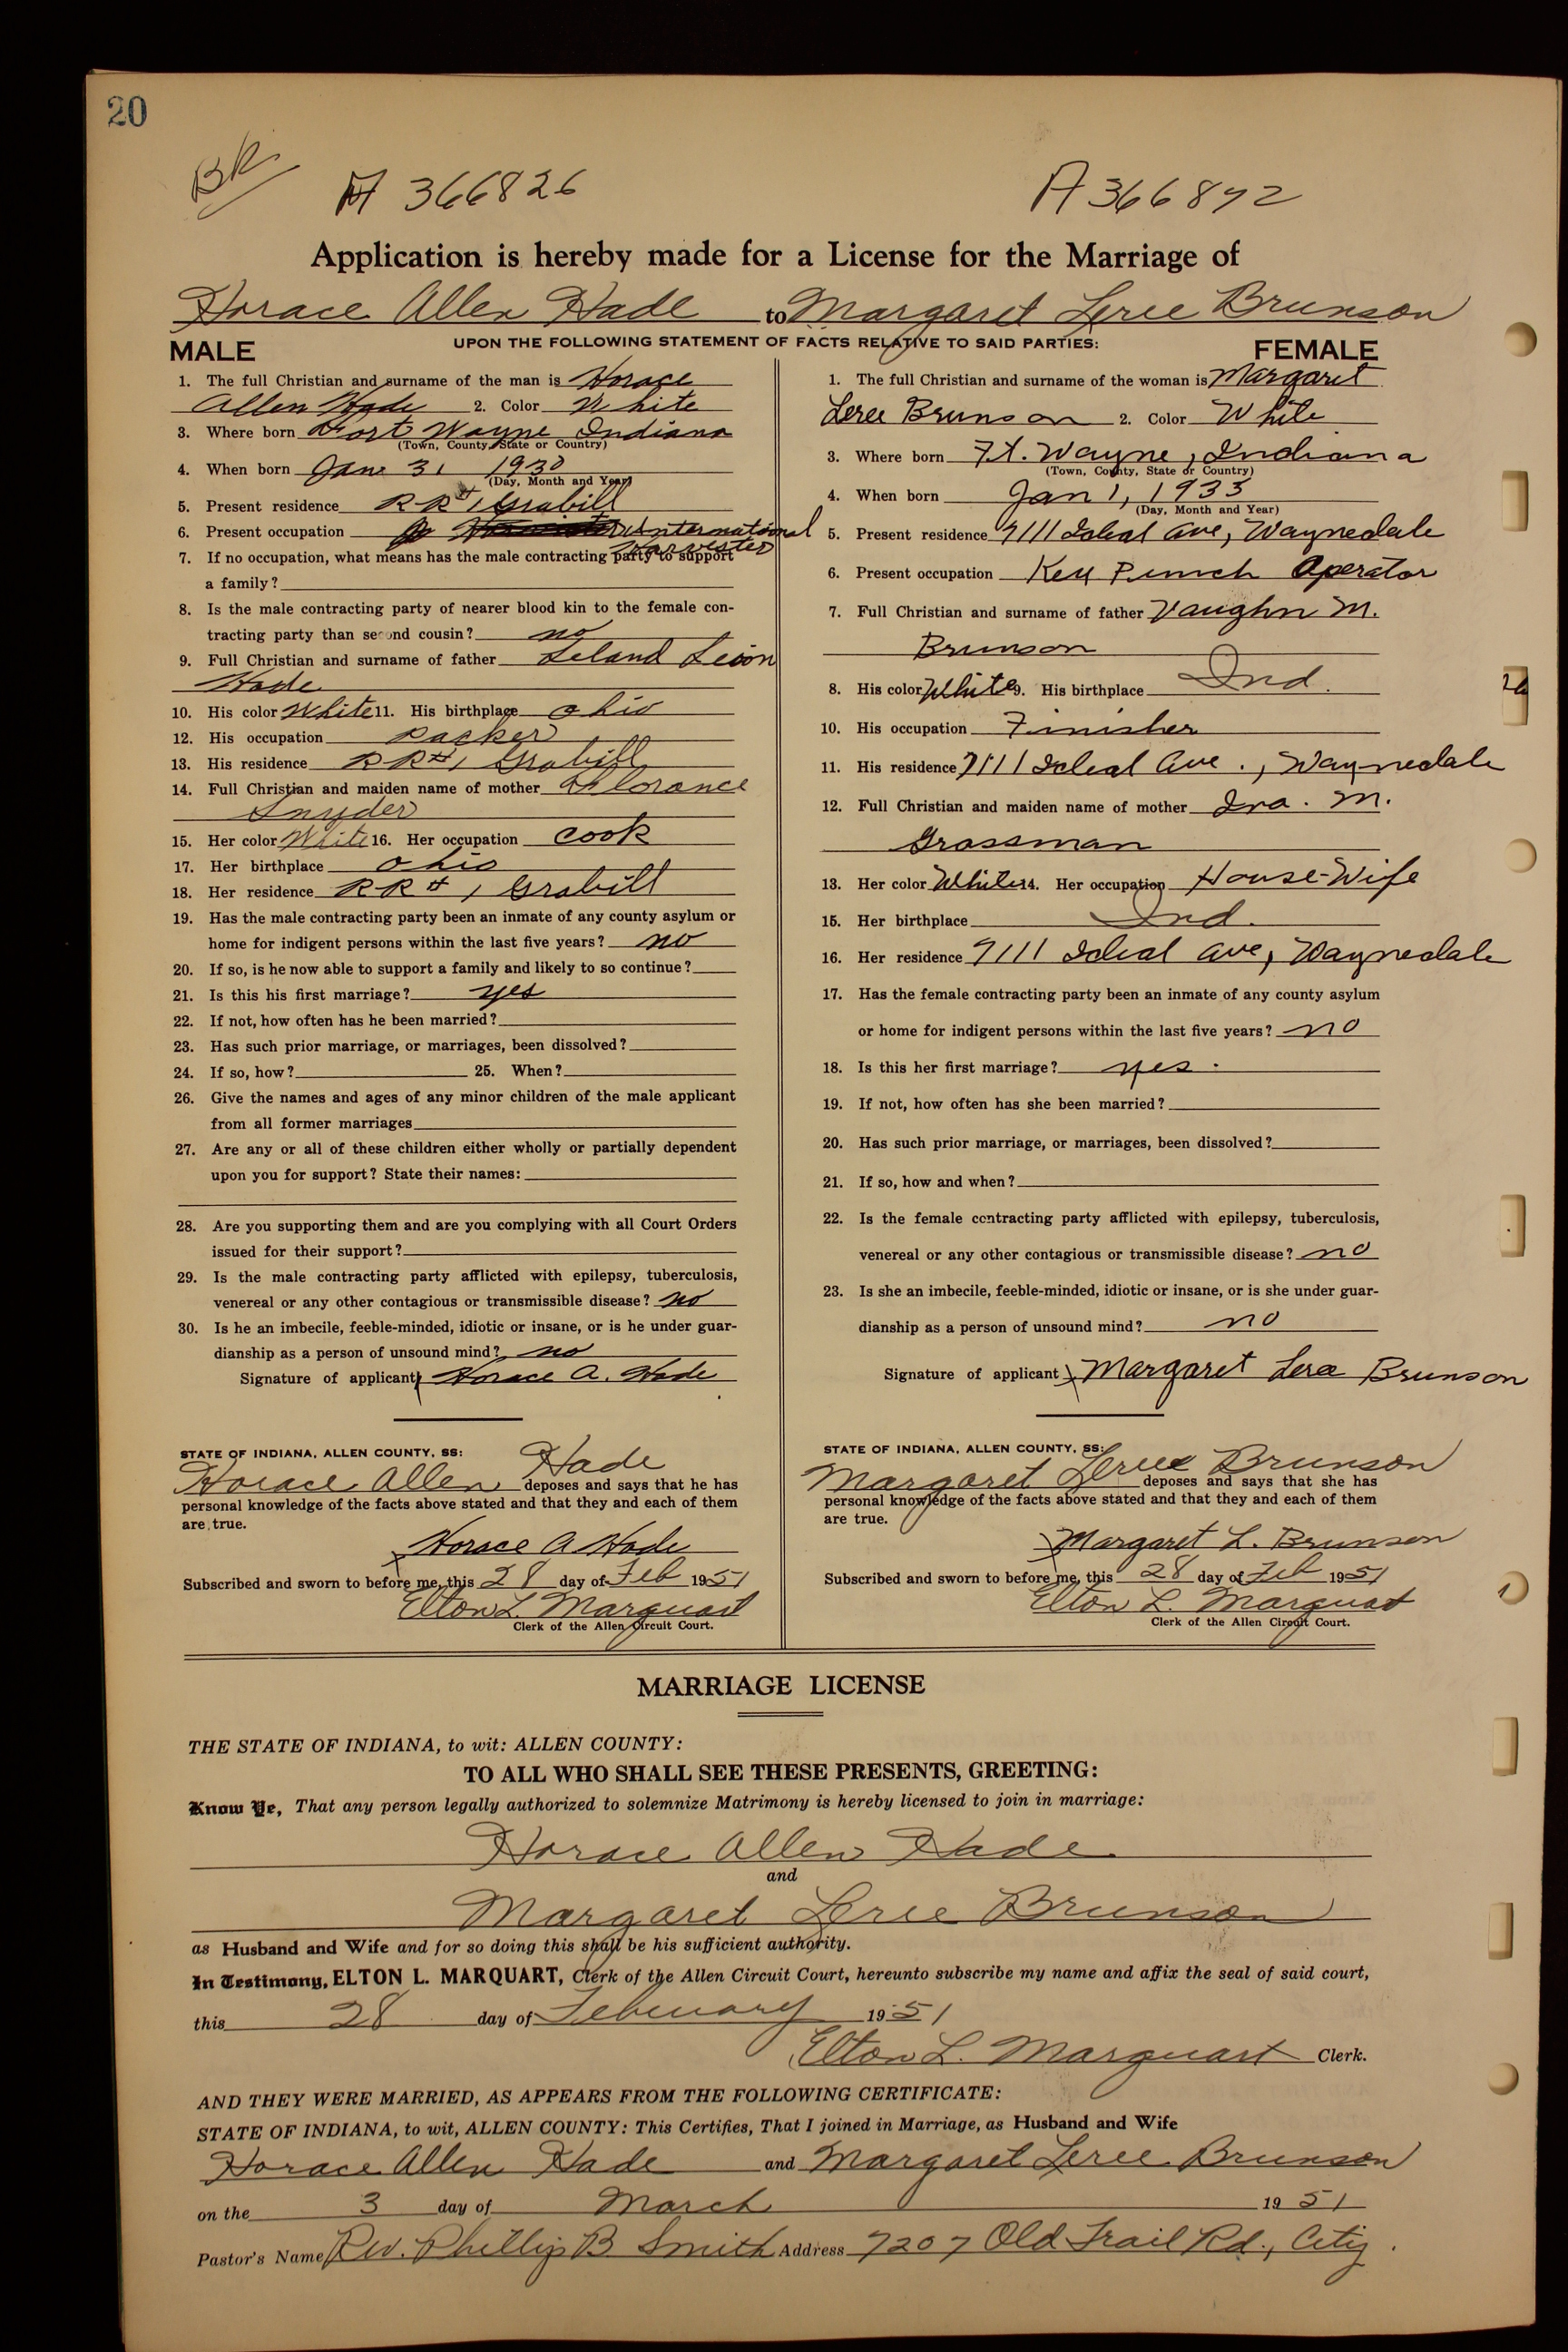 20
BR
A 366826
A 366892
Application is hereby made for a License for the Marriage of
Horace Allen Hade to Margaret Leree Brunson
UPON THE FOLLOWING STATEMENT OF FACTS RELATIVE TO SAID PARTIES:
MALE
1. The full Christian and surname of the man is Horace
Allen Hade 2. Color White
3. Where born Fort Wayne Indiana
(Town, County, State or Country)
4. When born Jan 31 1930
(Day, Month and Year)
5. Present residence RR# 1 Grabill
6. Present occupation International
Harvester
7. If no occupation, what means has the male contracting party to support
a family?
8. Is the male contracting party of nearer blood kin to the female con-
tracting party than second cousin? no
9. Full Christian and surname of father Leland Leion
Hade
10. His color White 11. His birthplace Ohio
12. His occupation Packer
13. His residence RR# 1 Grabill
14. Full Christian and maiden name of mother
Snyder
15. Her color White 16. Her occupation Cook
17. Her birthplace Ohio
18. Her residence RR# 1 Grabill
19. Has the male contracting party been an inmate of any county asylum or
home for indigent persons within the last five years? no
20. If so, is he now able to support a family and likely to so continue?
21. Is this his first marriage? yes
22. If not, how often has he been married?
23. Has such prior marriage, or marriages, been dissolved?
24. If so, how? 25. When?
26. Give the names and ages of any minor children of the male applicant
from all former marriages
27. Are any or all of these children either wholly or partially dependent
upon you for support? State their names:
28. Are you supporting them and are you complying with all Court Orders
issued for their support?
29. Is the male contracting party afflicted with epilepsy, tuberculosis,
venereal or any other contagious or transmissible disease? no
30. Is he an imbecile, feeble-minded, idiotic or insane, or is he under guar-
dianship as a person of unsound mind? no
Signature of applicant Horace A. Hade
STATE OF INDIANA, ALLEN COUNTY, SS:
Horace Allen Hade deposes and says that he has
personal knowledge of the facts above stated and that they and each of them
are true.
Horace A Hade
Subscribed and sworn to before me, this 28 day of Feb 1951
Elton L. Marquart
Clerk of the Allen Circuit Court.
FEMALE
1. The full Christian and surname of the woman is Margaret
Leree Brunson 2. Color White
3. Where born Ft. Wayne, Indiana
(Town, County, State or Country)
4. When born Jan 1, 1933
(Day, Month and Year)
5. Present residence 7111 Ideal Ave, Waynedale
6. Present occupation Key Punch Operator
7. Full Christian and surname of father Vaughn M.
Brunson
8. His color White 9. His birthplace Ind.
10. His occupation Finisher
11. His residence 7111 Ideal Ave., Waynedale
12. Full Christian and maiden name of mother Iva. M.
Grossman
13. Her color White 14. Her occupation House-Wife
15. Her birthplace Ind.
16. Her residence 7111 Ideal Ave, Waynedale
17. Has the female contracting party been an inmate of any county asylum
or home for indigent persons within the last five years? no
18. Is this her first marriage? yes.
19. If not, how often has she been married?
20. Has such prior marriage, or marriages, been dissolved?
21. If so, how and when?
22. Is the female contracting party afflicted with epilepsy, tuberculosis,
venereal or any other contagious or transmissible disease? no
23. Is she an imbecile, feeble-minded, idiotic or insane, or is she under guar-
dianship as a person of unsound mind? no
Signature of applicant Margaret Leree Brunson
STATE OF INDIANA, ALLEN COUNTY, SS:
Margaret Leree Brunson deposes and says that she has
personal knowledge of the facts above stated and that they and each of them
are true.
Margaret L. Brunson
Subscribed and sworn to before me, this 28 day of Feb 1951
Elton L. Marquart
Clerk of the Allen Circuit Court.
MARRIAGE LICENSE
THE STATE OF INDIANA, to wit: ALLEN COUNTY:
TO ALL WHO SHALL SEE THESE PRESENTS, GREETING:
Know Ye, That any person legally authorized to solemnize Matrimony is hereby licensed to join in marriage:
Horace Allen Hade
and
Margaret Leree Brunson
as Husband and Wife and for so doing this shall be his sufficient authority.
In Testimony, ELTON L. MARQUART, Clerk of the Allen Circuit Court, hereunto subscribe my name and affix the seal of said court,
this 28 day of February 1951
Elton L. Marquart Clerk.
AND THEY WERE MARRIED, AS APPEARS FROM THE FOLLOWING CERTIFICATE:
STATE OF INDIANA, to wit, ALLEN COUNTY: This Certifies, That I joined in Marriage, as Husband and Wife
Horace Allen Hade and Margaret Leree Brunson
on the 3 day of March 1951
Pastor's Name Rev. Phillip B Smith Address 7207 Old Trail Rd., City.